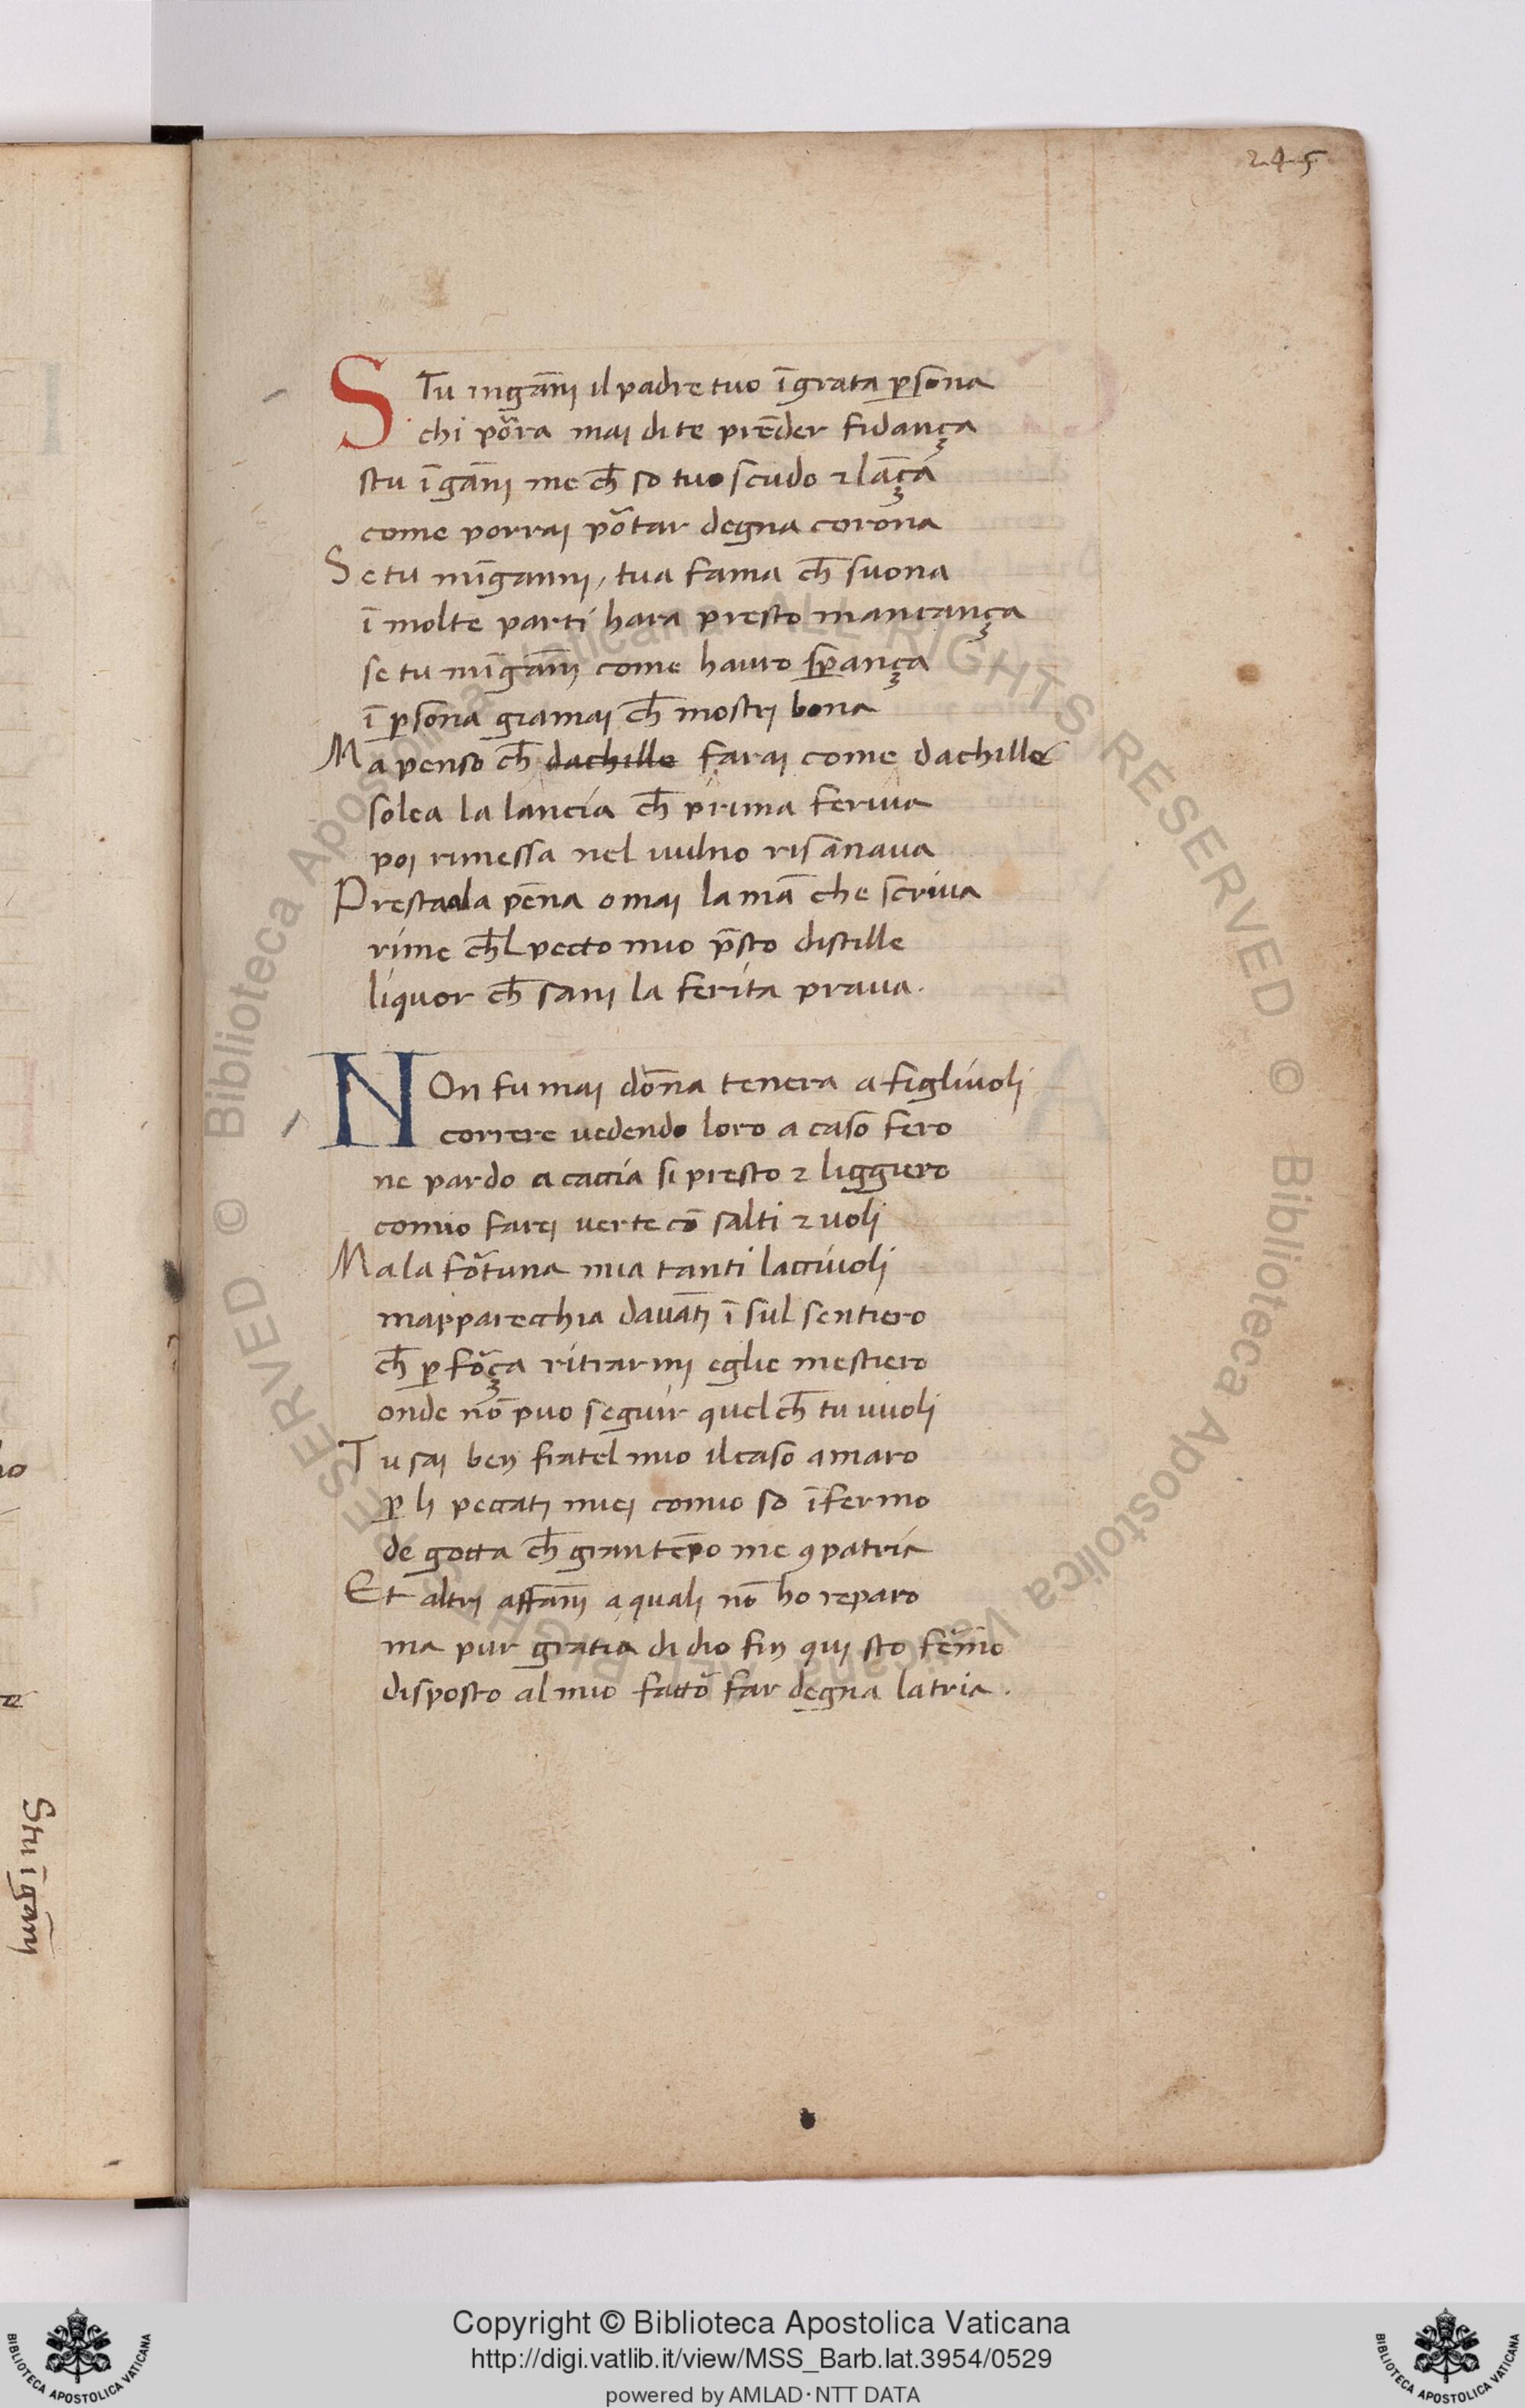 245
STu ingāni il padre tuo īgrata ꝑsona
chi pōra mai di te prēder fidança
stu īgāni me ch̄ so tuo scudo ⁊ lāça
come porrai põtar degna corona
Se tu mīganni, tua fama ch̄ suona
ī molte parti hara presto mancança
se tu mīgāni come hauro sꝑança
ī ꝑsona giamai ch̄ mostri bona
Ma penso ch̄ dachille farai come dachille
solea la lancia ch̄ prima feriua
poi rimessa nel vulno risanaua
Presta la pēna omai la mā che scriua
rime ch̄l pecto mio p̄sto distille
liquor ch̄ sani la ferita praua.
NOn fu mai dōna tenera a figliuoli
correre uedendo loro a caso fero
ne pardo a caccia si presto ⁊ liggiero
comio farei uerte cō salti ⁊ uoli
Ma la fõtuna mia tanti lacciuoli
mapparecchia dauāti ī sul sentiero
ch̄ ꝑ fõça ritrarmi eglie mestiero
onde nō puo seguir quel ch̄ tu uuoli
Tu sai ben fratel mio il caso amaro
ꝑ li peccati miei comio so īfermo
de gotta ch̄ gran tēpo me ꝯpatria
Et altri affāni a quali nō ho reparo
ma pur gratia di dio fin qui sto fẽmo
disposto al mio fattõ far degna latria.
Stu īgāni
Copyright © Biblioteca Apostolica Vaticana
http://digi.vatlib.it/view/MSS_Barb.lat.3954/0529
powered by AMLAD·NTT DATA
BIBLIOTECA APOSTOLICA VATICANA
BIBLIOTECA APOSTOLICA VATICANA
© Biblioteca Apostolica Vaticana ALL RIGHTS RESERVED © Biblioteca Apostolica Vaticana ALL RIGHTS RESERVED